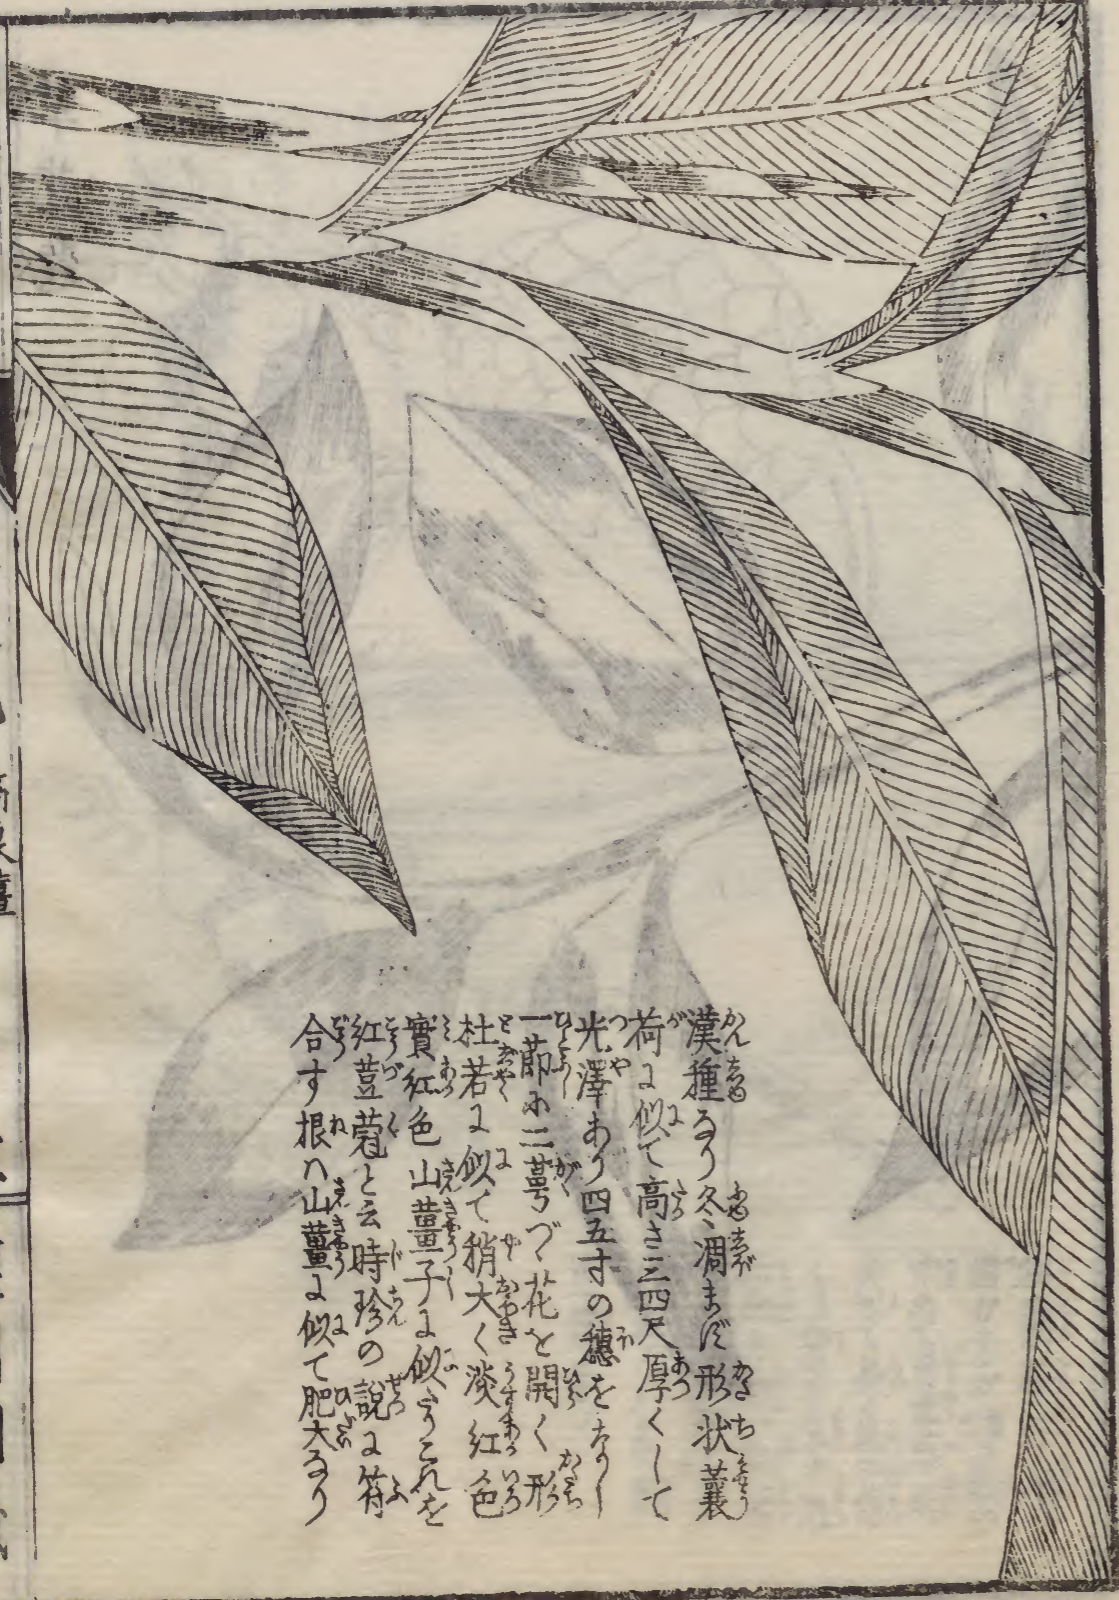 漢種なり冬凋まず形状蘘
荷に似て高さ三四尺厚くして
光澤あり四五寸の穗をなし
一莭に二萼づゝ花を開く形
杜若に似て稍大く淡紅色
實紅色山薑子に似たりこれを
紅荳蔲と云時珍の說に符
合す根ハ山薑に似て肥大なり